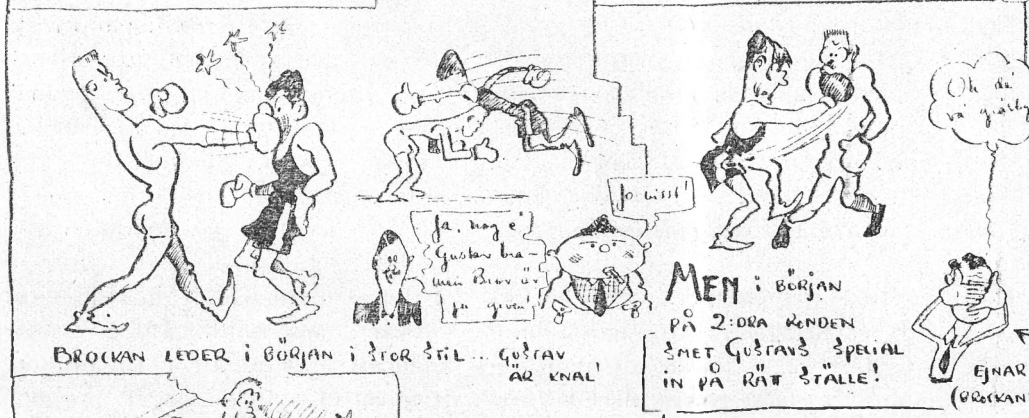 Ja, nog e'
Gustav bra-
men Brow är
ju given!
Jo visst!
BROCKAN LEDER i BÖRJAN i STOR STIL... GUSTAV
ÄR KNAL'
MEN i BÖRJAN
PÅ 2:DRA RONDEN
SMET GUSTAVS SPECIAL
IN PÅ RÄTT STÄLLE!
Oh då
va
EJNAR
(BROCKAN